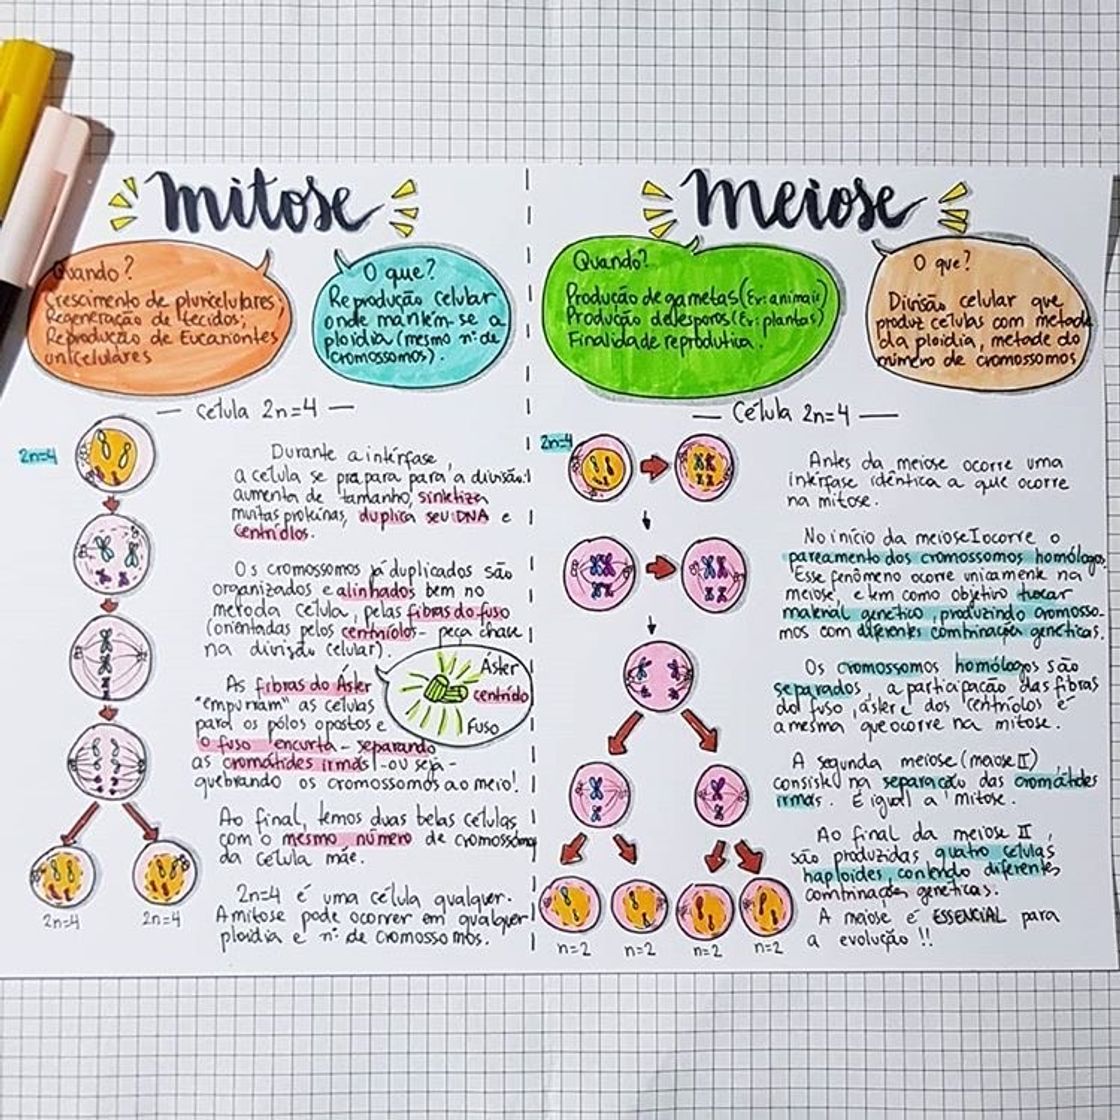 mitose
Quando?
Crescimento de pluricelulares;
Regeneração de tecidos;
Reprodução de Eucariontes
unicelulares
O que?
Reprodução celular
onde mantém-se a
ploidia (mesmo nº de
cromossomos).
— célula 2n=4 —
2n=4
Durante a intérfase,
a célula se prapara para a divisão:
aumenta de tamanho, sintetiza
muitas proteínas, duplica seu DNA e
centríolos.
Os cromossomos já duplicados são
organizados e alinhados bem no
meio da célula, pelas fibras do fuso
(orientadas pelos centríolos - peça chave
na divisão celular).
Áster
centríolo
Fuso
As fibras do Áster
"empurram" as células
para os pólos opostos e
o fuso encurta - separando
as cromátides irmãs - ou seja -
quebrando os cromossomos ao meio!
Ao final, temos duas belas células
com o mesmo número de cromossomos
da célula mãe.
2n=4 é uma célula qualquer.
A mitose pode ocorrer em qualquer
ploidia e nº de cromossomos.
2n=4 2n=4
meiose
Quando?
Produção de gametas (Ex: animais)
Produção de esporos (Ex: plantas)
Finalidade reprodutiva.
O que?
Divisão celular que
produz células com metade
da ploidia, metade do
número de cromossomos
— Célula 2n=4 —
2n=4
Antes da meiose ocorre uma
intérfase idêntica a que ocorre
na mitose.
No início da meiose I ocorre o
pareamento dos cromossomos homólogos.
Esse fenômeno ocorre unicamente na
meiose, e tem como objetivo trocar
material genético, produzindo cromosso-
mos com diferentes combinações genéticas.
Os cromossomos homólogos são
separados, a participação das fibras
do fuso, áster e dos centríolos é
a mesma que ocorre na mitose.
A segunda meiose (meiose II)
consiste na separação das cromátides
irmãs. É igual a mitose.
Ao final da meiose II,
são produzidas quatro células
haploides, contendo diferentes
combinações genéticas.
A meiose é ESSENCIAL para
a evolução!!
n=2 n=2 n=2 n=2